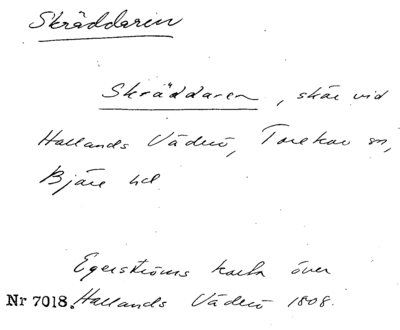 Skräddaren
Skräddaren, skär vid
Hallands Väderö, Torekov sn,
Bjäre hd
Egerströms karta över
Nr 7018. Hallands Väderö 1808.